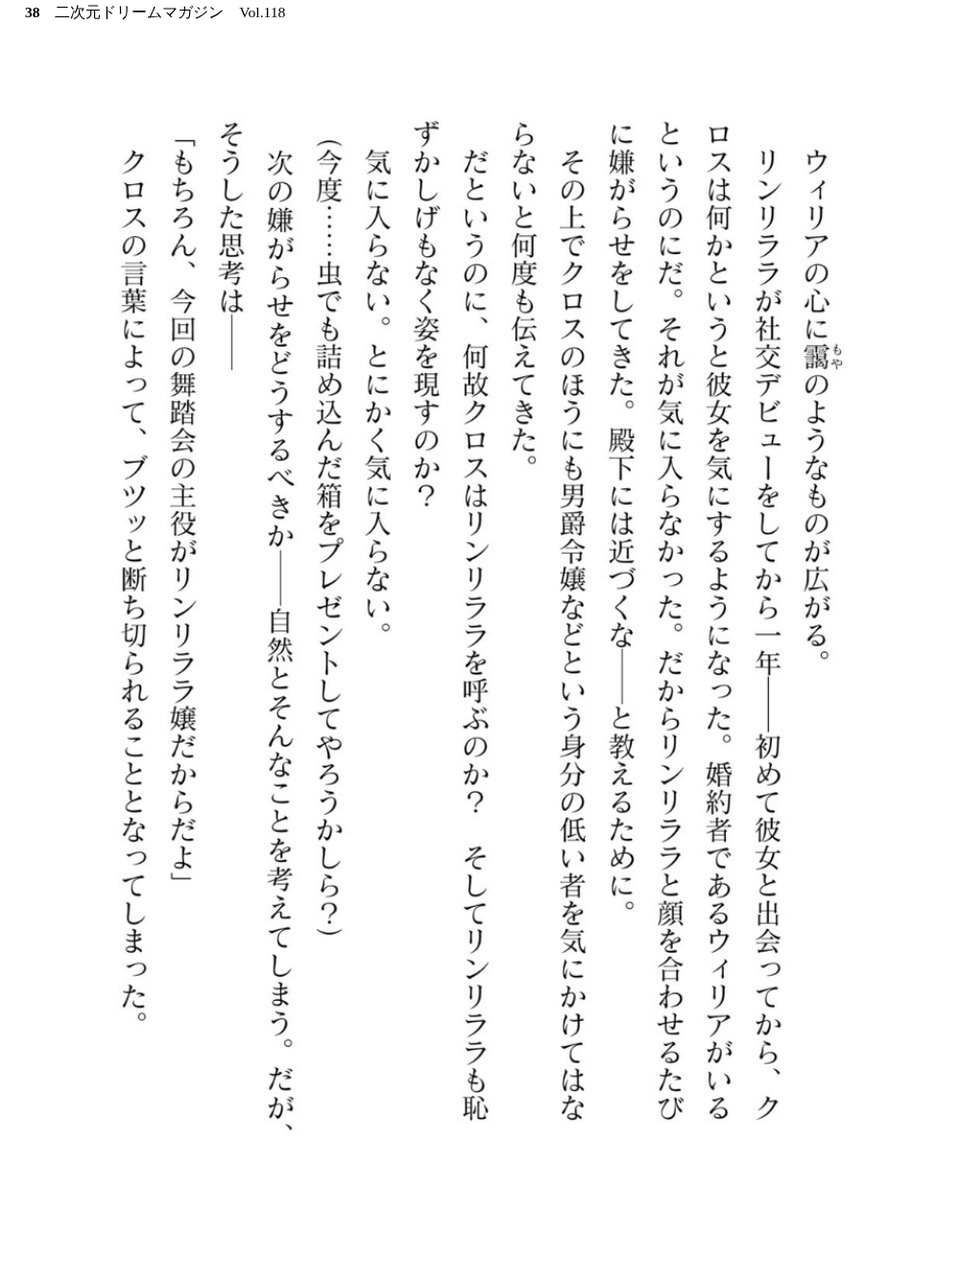 38 二次元ドリームマガジン Vol.118
　ウィリアの心に靄のようなものが広がる。
もや
　リンリララが社交デビューをしてから一年――初めて彼女と出会ってから、ク
ロスは何かというと彼女を気にするようになった。婚約者であるウィリアがいる
というのにだ。それが気に入らなかった。だからリンリララと顔を合わせるたび
に嫌がらせをしてきた。殿下には近づくな――と教えるために。
　その上でクロスのほうにも男爵令嬢などという身分の低い者を気にかけてはな
らないと何度も伝えてきた。
　だというのに、何故クロスはリンリララを呼ぶのか？　そしてリンリララも恥
ずかしげもなく姿を現すのか？
　気に入らない。とにかく気に入らない。
（今度……虫でも詰め込んだ箱をプレゼントしてやろうかしら？）
　次の嫌がらせをどうするべきか――自然とそんなことを考えてしまう。だが、
そうした思考は――
「もちろん、今回の舞踏会の主役がリンリララ嬢だからだよ」
　クロスの言葉によって、ブツッと断ち切られることとなってしまった。